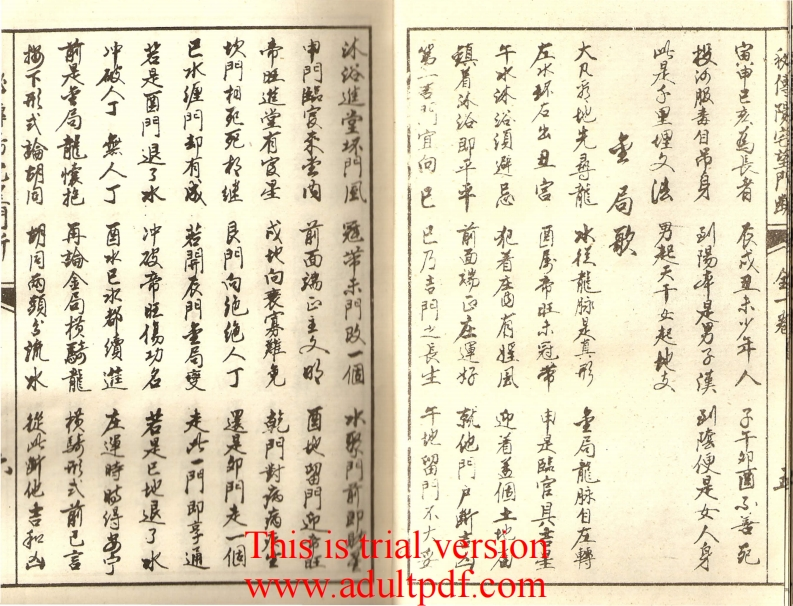 秘傳陽宅望門斷 全一卷 五
寅申巳亥為長者 辰戌丑未少年人 子午卯酉不善死
投河服毒自吊身 到陽本是男子漢 到陰便是女人身
此是千里埋文法 男起天干女起地支
金局歌
大凡看地先尋龍 水從龍脉是真形 金局龍脉自左轉
左水环右出丑宮 酉屬帝旺未冠帶 申是臨官具吉星
午水沐浴須避忌 犯着庄內有婬風 迎着蓋個土地庙
鎮着沐浴即平平 前面端正庄運好 就他門户斷吉凶
第一吉門宜向巳 巳乃吉門之長生 午地留門不大妥
沐浴進堂坏門風 冠帶未門改一個 水聚門前即財
申門臨官來堂内 前面端正主文明 酉地留門迎帝旺
帝旺進堂有官星 戌地向衰寡難免 乾門對病病生
坎門相死死相继 艮門向绝绝人丁 還是卯門走一個
巳水缠門却有成 若開辰門金局變 走此一門即享通
若是酉門退了水 冲破帝旺傷功名 若是巳地退了水
冲破人丁無人丁 酉水巳水都續進 庄運時時得安宁
前是金局龍懷抱 再論金局橫騎龍 橫騎形式前已言
按下形式論胡同 胡同兩頭分流水 從此断他吉和凶
This is trial version
www.adultpdf.com